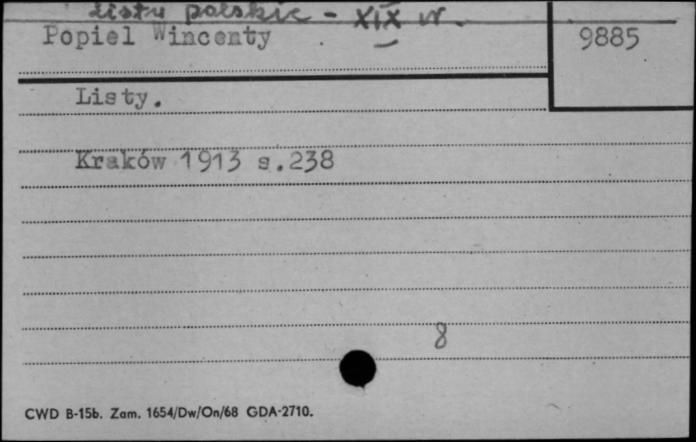 Listy polskie - XIX w.
Popiel Wincenty
9885
Listy.
Kraków 1913 s.238
8
CWD B-15b. Zam. 1654/Dw/On/68 GDA-2710.